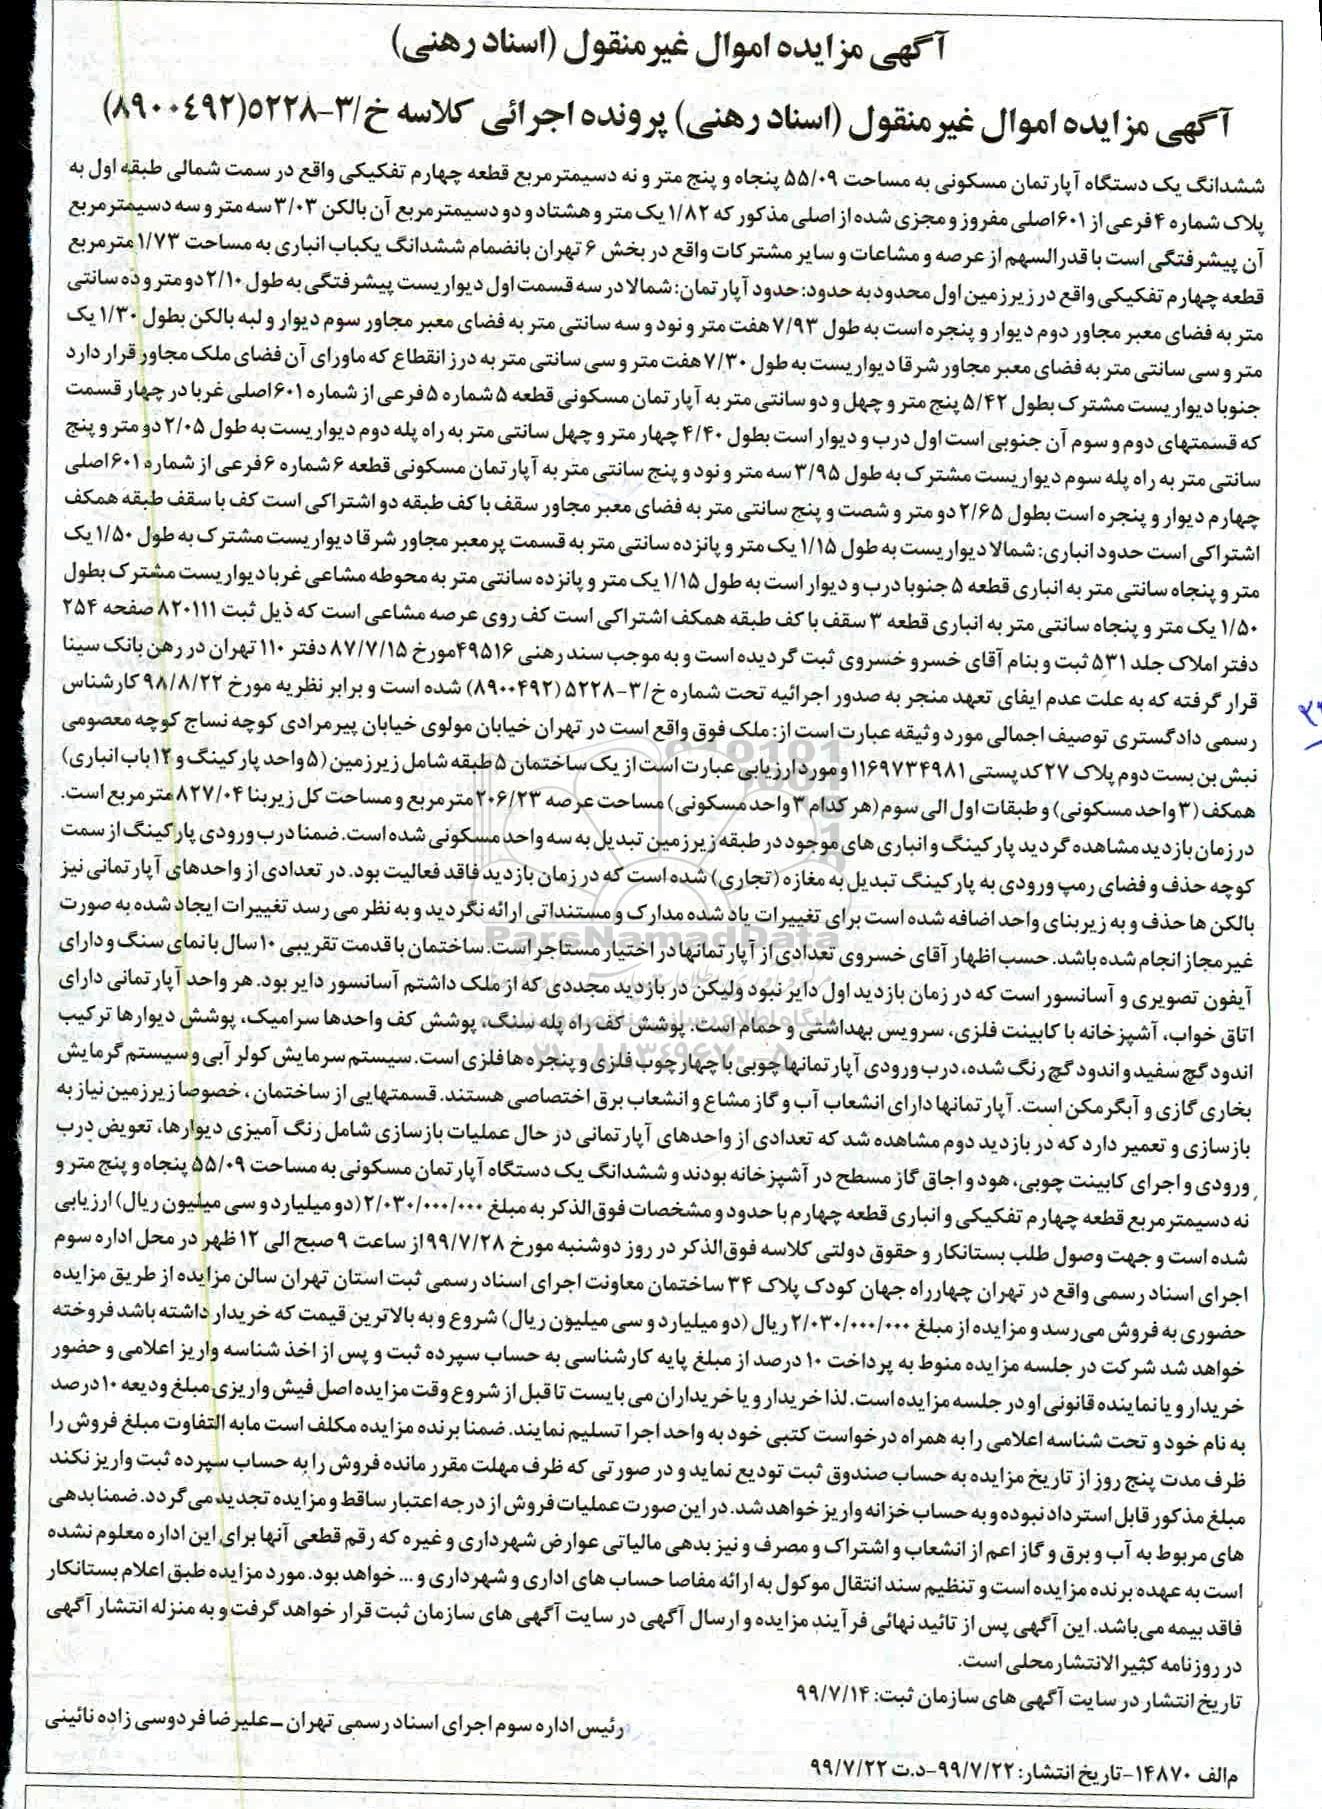 آگهی مزایده اموال غیرمنقول (اسناد رهنی)
آگهی مزایده اموال غیرمنقول (اسناد رهنی) پرونده اجرائی کلاسه خ/۳-۵۲۲۸(۸۹۰۰۴۹۲)
ششدانگ یک دستگاه آپارتمان مسکونی به مساحت ۵۵/۰۹ پنجاه و پنج متر و نه دسیمترمربع قطعه چهارم تفکیکی واقع در سمت شمالی طبقه اول به
پلاک شماره ۴ فرعی از ۶۰۱اصلی مفروز و مجزی شده از اصلی مذکور که ۱/۸۲ یک متر و هشتاد و دو دسیمترمربع آن بالکن ۳/۰۳ سه متر و سه دسیمترمربع
آن پیشرفتگی است با قدرالسهم از عرصه و مشاعات و سایر مشترکات واقع در بخش ۶ تهران بانضمام ششدانگ یکباب انباری به مساحت ۱/۷۳مترمربع
قطعه چهارم تفکیکی واقع در زیرزمین اول محدود به حدود: حدود آپارتمان: شمالا در سه قسمت اول دیواریست پیشرفتگی به طول ۲/۱۰ دو متر و ده سانتی
متر به فضای معبر مجاور دوم دیوار و پنجره است به طول ۷/۹۳ هفت متر و نود و سه سانتی متر به فضای معبر مجاور سوم دیوار و لبه بالکن بطول ۱/۳۰ یک
متر و سی سانتی متر به فضای معبر مجاور شرقا دیواریست به طول ۷/۳۰ هفت متر و سی سانتی متر به درز انقطاع که ماورای آن فضای ملک مجاور قرار دارد
جنوبا دیواریست مشترک بطول ۵/۴۲ پنج متر و چهل و دو سانتی متر به آپارتمان مسکونی قطعه ۵ شماره ۵ فرعی از شماره ۶۰۱اصلی غربا در چهار قسمت
که قسمتهای دوم و سوم آن جنوبی است اول درب و دیوار است بطول ۴/۴۰ چهار متر و چهل سانتی متر به راه پله دوم دیواریست به طول ۲/۰۵ دو متر و پنج
سانتی متر به راه پله سوم دیواریست مشترک به طول ۳/۹۵ سه متر و نود و پنج سانتی متر به آپارتمان مسکونی قطعه ۶ شماره ۶ فرعی از شماره ۶۰۱اصلی
چهارم دیوار و پنجره است بطول ۲/۶۵ دو متر و شصت و پنج سانتی متر به فضای معبر مجاور سقف با کف طبقه دو اشتراکی است کف با سقف طبقه همکف
اشتراکی است حدود انباری: شمالا دیواریست به طول ۱/۱۵ یک متر و پانزده سانتی متر به قسمت پر معبر مجاور شرقا دیواریست مشترک به طول ۱/۵۰ یک
متر و پنجاه سانتی متر به انباری قطعه ۵ جنوبا درب و دیوار است به طول ۱/۱۵ یک متر و پانزده سانتی متر به محوطه مشاعی غربا دیواریست مشترک بطول
۱/۵۰ یک متر و پنجاه سانتی متر به انباری قطعه ۳ سقف با کف طبقه همکف اشتراکی است کف روی عرصه مشاعی است که ذیل ثبت ۸۲۰۱۱۱ صفحه ۲۵۴
دفتر املاک جلد ۵۳۱ ثبت و بنام آقای خسرو خسروی ثبت گردیده است و به موجب سند رهنی ۴۹۵۱۶مورخ ۸۷/۷/۱۵ دفتر ۱۱۰ تهران در رهن بانک سینا
قرار گرفته که به علت عدم ایفای تعهد منجر به صدور اجرائیه تحت شماره خ/۳-۵۲۲۸ (۸۹۰۰۴۹۲) شده است و برابر نظریه مورخ ۹۸/۸/۲۲ کارشناس
رسمی دادگستری توصیف اجمالی مورد وثیقه عبارت است از: ملک فوق واقع است در تهران خیابان مولوی خیابان پیرمرادی کوچه نساج کوچه معصومی
نبش بن بست دوم پلاک ۲۷ کدپستی ۱۱۶۹۷۳۴۹۸۱ و مورد ارزیابی عبارت است از یک ساختمان ۵ طبقه شامل زیرزمین (۵ واحد پارکینگ و ۱۲ باب انباری)
همکف (۳ واحد مسکونی) و طبقات اول الی سوم (هر کدام ۳ واحد مسکونی) مساحت عرصه ۲۰۶/۲۳ مترمربع و مساحت کل زیربنا ۸۲۷/۰۴ مترمربع است.
در زمان بازدید مشاهده گردید پارکینگ و انباری های موجود در طبقه زیرزمین تبدیل به سه واحد مسکونی شده است. ضمنا درب ورودی پارکینگ از سمت
کوچه حذف و فضای رمپ ورودی به پارکینگ تبدیل به مغازه (تجاری) شده است که در زمان بازدید فاقد فعالیت بود. در تعدادی از واحدهای آپارتمانی نیز
بالکن ها حذف و به زیربنای واحد اضافه شده است برای تغییرات یاد شده مدارک و مستنداتی ارائه نگردید و به نظر می رسد تغییرات ایجاد شده به صورت
غیرمجاز انجام شده باشد. حسب اظهار آقای خسروی تعدادی از آپارتمانها در اختیار مستاجر است. ساختمان با قدمت تقریبی ۱۰ سال با نمای سنگ و دارای
آیفون تصویری و آسانسور است که در زمان بازدید اول دایر نبود ولیکن در بازدید مجددی که از ملک داشتم آسانسور دایر بود. هر واحد آپارتمانی دارای
اتاق خواب، آشپزخانه با کابینت فلزی، سرویس بهداشتی و حمام است. پوشش کف راه پله سنگ، پوشش کف واحدها سرامیک، پوشش دیوارها ترکیب
اندود گچ سفید و اندود گچ رنگ شده، درب ورودی آپارتمانها چوبی با چهارچوب فلزی و پنجره ها فلزی است. سیستم سرمایش کولر آبی و سیستم گرمایش
بخاری گازی و آبگرمکن است. آپارتمانها دارای انشعاب آب و گاز مشاع و انشعاب برق اختصاصی هستند. قسمتهایی از ساختمان، خصوصا زیرزمین نیاز به
بازسازی و تعمیر دارد که در بازدید دوم مشاهده شد که تعدادی از واحدهای آپارتمانی در حال عملیات بازسازی شامل رنگ آمیزی دیوارها، تعویض درب
ورودی و اجرای کابینت چوبی، هود و اجاق گاز مسطح در آشپزخانه بودند و ششدانگ یک دستگاه آپارتمان مسکونی به مساحت ۵۵/۰۹ پنجاه و پنج متر و
نه دسیمترمربع قطعه چهارم تفکیکی و انباری قطعه چهارم با حدود و مشخصات فوق الذکر به مبلغ ۲/۰۳۰/۰۰۰/۰۰۰ (دو میلیارد و سی میلیون ریال) ارزیابی
شده است و جهت وصول طلب بستانکار و حقوق دولتی کلاسه فوق الذکر در روز دوشنبه مورخ ۹۹/۷/۲۸ از ساعت ۹ صبح الی ۱۲ ظهر در محل اداره سوم
اجرای اسناد رسمی واقع در تهران چهارراه جهان کودک پلاک ۳۴ ساختمان معاونت اجرای اسناد رسمی ثبت استان تهران سالن مزایده از طریق مزایده
حضوری به فروش می‌رسد و مزایده از مبلغ ۲/۰۳۰/۰۰۰/۰۰۰ ریال (دو میلیارد و سی میلیون ریال) شروع و به بالاترین قیمت که خریدار داشته باشد فروخته
خواهد شد شرکت در جلسه مزایده منوط به پرداخت ۱۰ درصد از مبلغ پایه کارشناسی به حساب سپرده ثبت و پس از اخذ شناسه واریز اعلامی و حضور
خریدار و یا نماینده قانونی او در جلسه مزایده است. لذا خریدار و یا خریداران می بایست تا قبل از شروع وقت مزایده اصل فیش واریزی مبلغ ودیعه ۱۰درصد
به نام خود و تحت شناسه اعلامی را به همراه درخواست کتبی خود به واحد اجرا تسلیم نمایند. ضمنا برنده مزایده مکلف است مابه التفاوت مبلغ فروش را
ظرف مدت پنج روز از تاریخ مزایده به حساب صندوق ثبت تودیع نماید و در صورتی که ظرف مهلت مقرر مانده فروش را به حساب سپرده ثبت واریز نکند
مبلغ مذکور قابل استرداد نبوده و به حساب خزانه واریز خواهد شد. در این صورت عملیات فروش از درجه اعتبار ساقط و مزایده تجدید می گردد. ضمنا بدهی
های مربوط به آب و برق و گاز اعم از انشعاب و اشتراک و مصرف و نیز بدهی مالیاتی عوارض شهرداری و غیره که رقم قطعی آنها برای این اداره معلوم نشده
است به عهده برنده مزایده است و تنظیم سند انتقال موکول به ارائه مفاصا حساب های اداری و شهرداری و ... خواهد بود. مورد مزایده طبق اعلام بستانکار
فاقد بیمه می‌باشد. این آگهی پس از تائید نهائی فرآیند مزایده و ارسال آگهی در سایت آگهی های سازمان ثبت قرار خواهد گرفت و به منزله انتشار آگهی
در روزنامه کثیرالانتشار محلی است.
تاریخ انتشار در سایت آگهی های سازمان ثبت: ۹۹/۷/۱۴
رئیس اداره سوم اجرای اسناد رسمی تهران ـ علیرضا فردوسی زاده نائینی
م‌الف ۱۴۸۷۰-تاریخ انتشار: ۹۹/۷/۲۲-د.ت ۹۹/۷/۲۲
ParsNamadData
۰۲۱-۸۸۳۴۹۶۷۰-۸